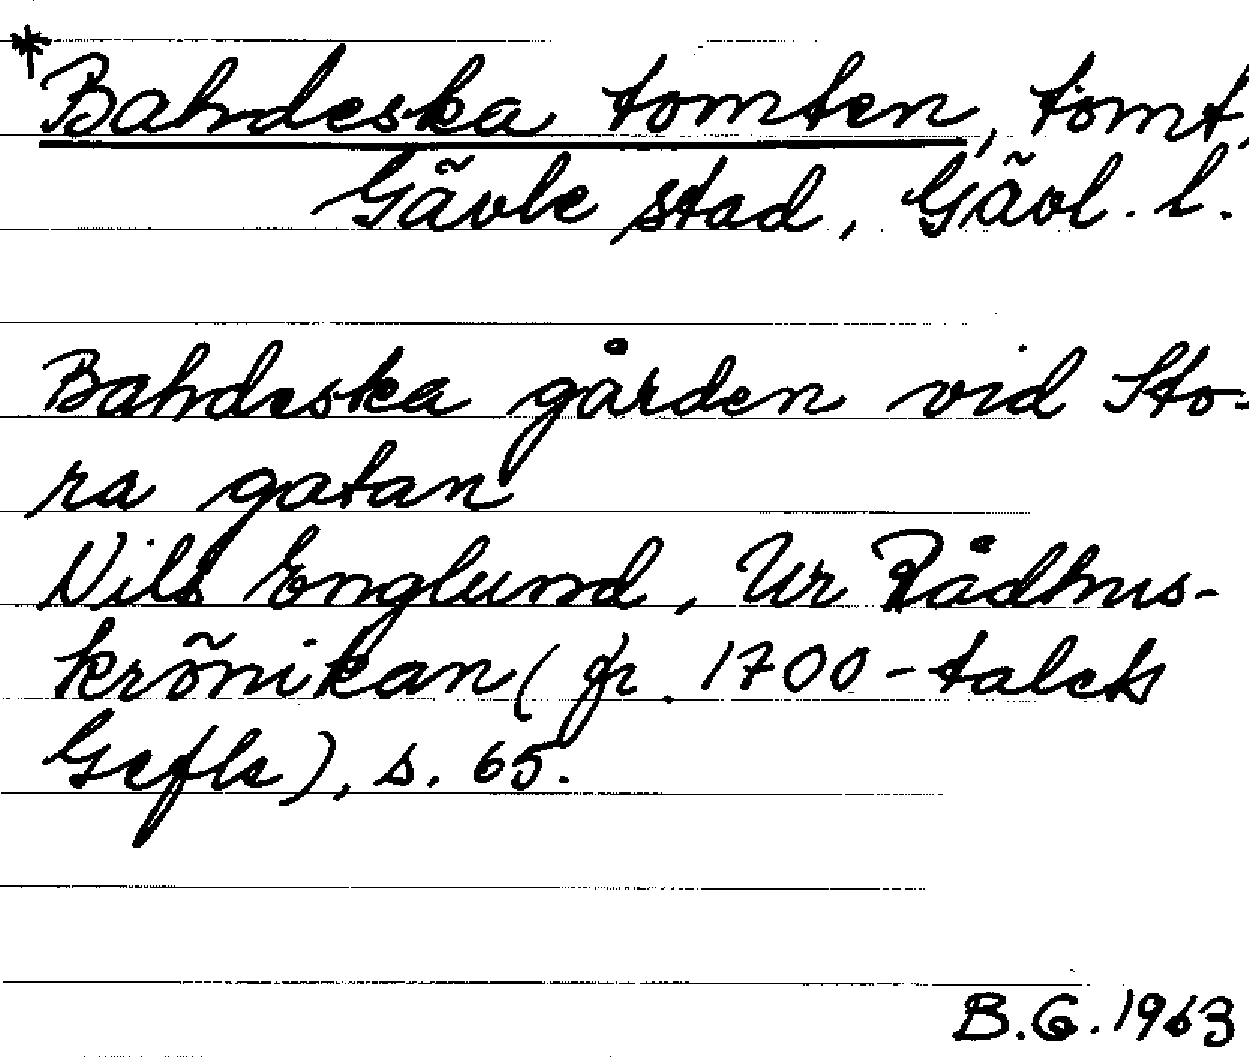 *Bahrdeska tomten, tomt,
Gävle stad, Gävl. l.
Bahrdeska gården vid Sto-
ra gatan
Nils Englund, Ur Rådhus-
krönikan (fr. 1700-talets
Gefle), s. 65.
B.G. 1963